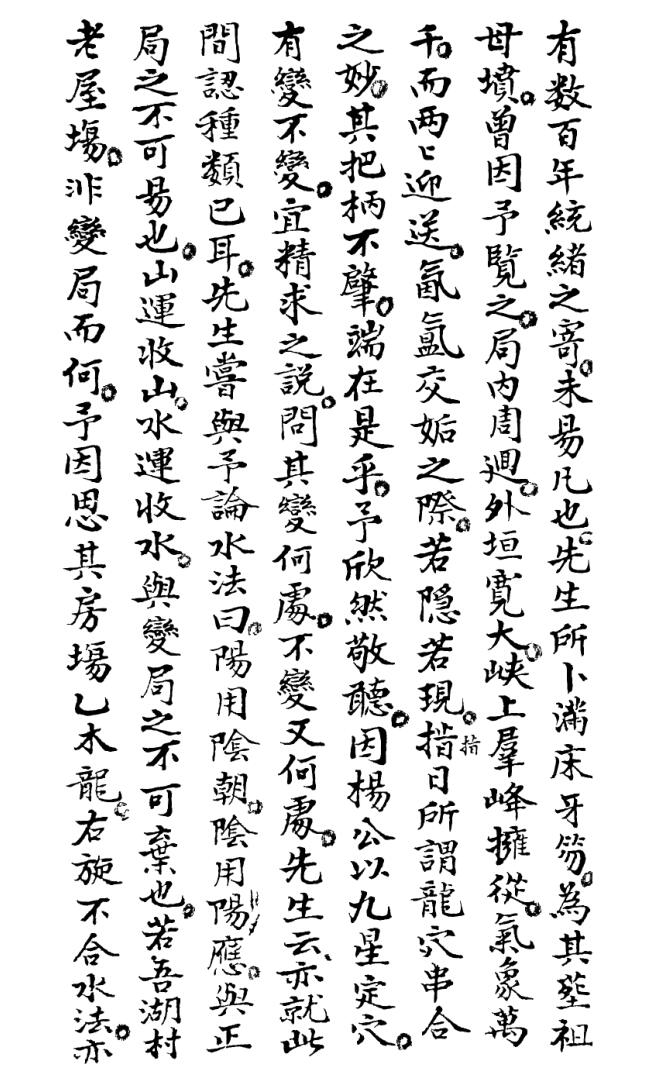 有数百年統緒之寄。未易凡也。先生所卜滿床牙笏。為其塟祖
母墳。曾因予覧之。局内周廻。外垣寛大。峡上羣峰擁從。氣象萬
千。而两〻迎送。氤氲交姤之際。若隱若現。指日所謂龍穴串合
指
之妙。其把柄不肇端在是乎。予欣然敬聽。因楊公以九星定穴。
有變不變。宜精求之説。問其變何處。不變又何處。先生云、亦就此
間認種類已耳。先生嘗與予論水法曰。陽用陰朝。陰用陽應。與正
局之不可易也。山運收山。水運收水。與變局之不可棄也。若吾湖村
老屋塲。非變局而何。予因思其房塲乙木龍。右旋不合水法。亦